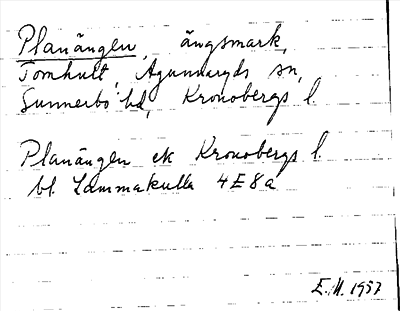 Planängen, ängsmark,
Tomhult, Agunnaryds sn,
Sunnerbo hd, Kronobergs l.
Planängen ek Kronobergs l.
bl. Lammakulla 4E8a
E.M. 1957